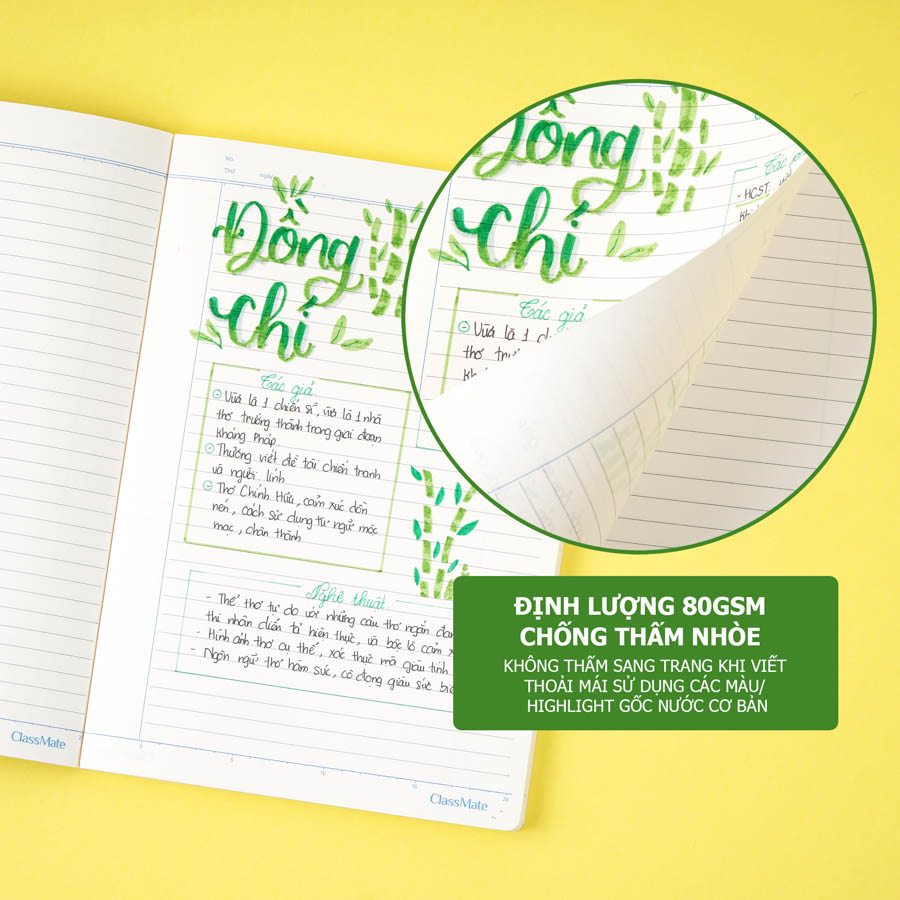 No.
Thứ
ngày
Đồng
Chí
Tác giả
Vừa là 1 chiến sĩ, vừa là 1 nhà
thơ trưởng thành trong giai đoạn
kháng Pháp.
Thường viết đề tài chiến tranh
và người lính
Thơ Chính Hữu, cảm xúc dồn
nén, cách sử dụng từ ngữ mộc
mạc, chân thành
Nghệ thuật
- Thể thơ tự do với những câu thơ ngắn
thi nhân diễn tả hiện thực, và bộc lộ cảm
- Hình ảnh thơ cụ thể, xác thực mà giàu tính
- Ngôn ngữ thơ hàm súc, cô đọng giàu sức
ClassMate
0
5
10
15
20
ClassMate
Đồng
Chí
Tác
- HCST
Tác giả
Vừa là 1
thơ
ĐỊNH LƯỢNG 80GSM
CHỐNG THẤM NHÒE
KHÔNG THẤM SANG TRANG KHI VIẾT
THOẢI MÁI SỬ DỤNG CÁC MÀU/
HIGHLIGHT GỐC NƯỚC CƠ BẢN